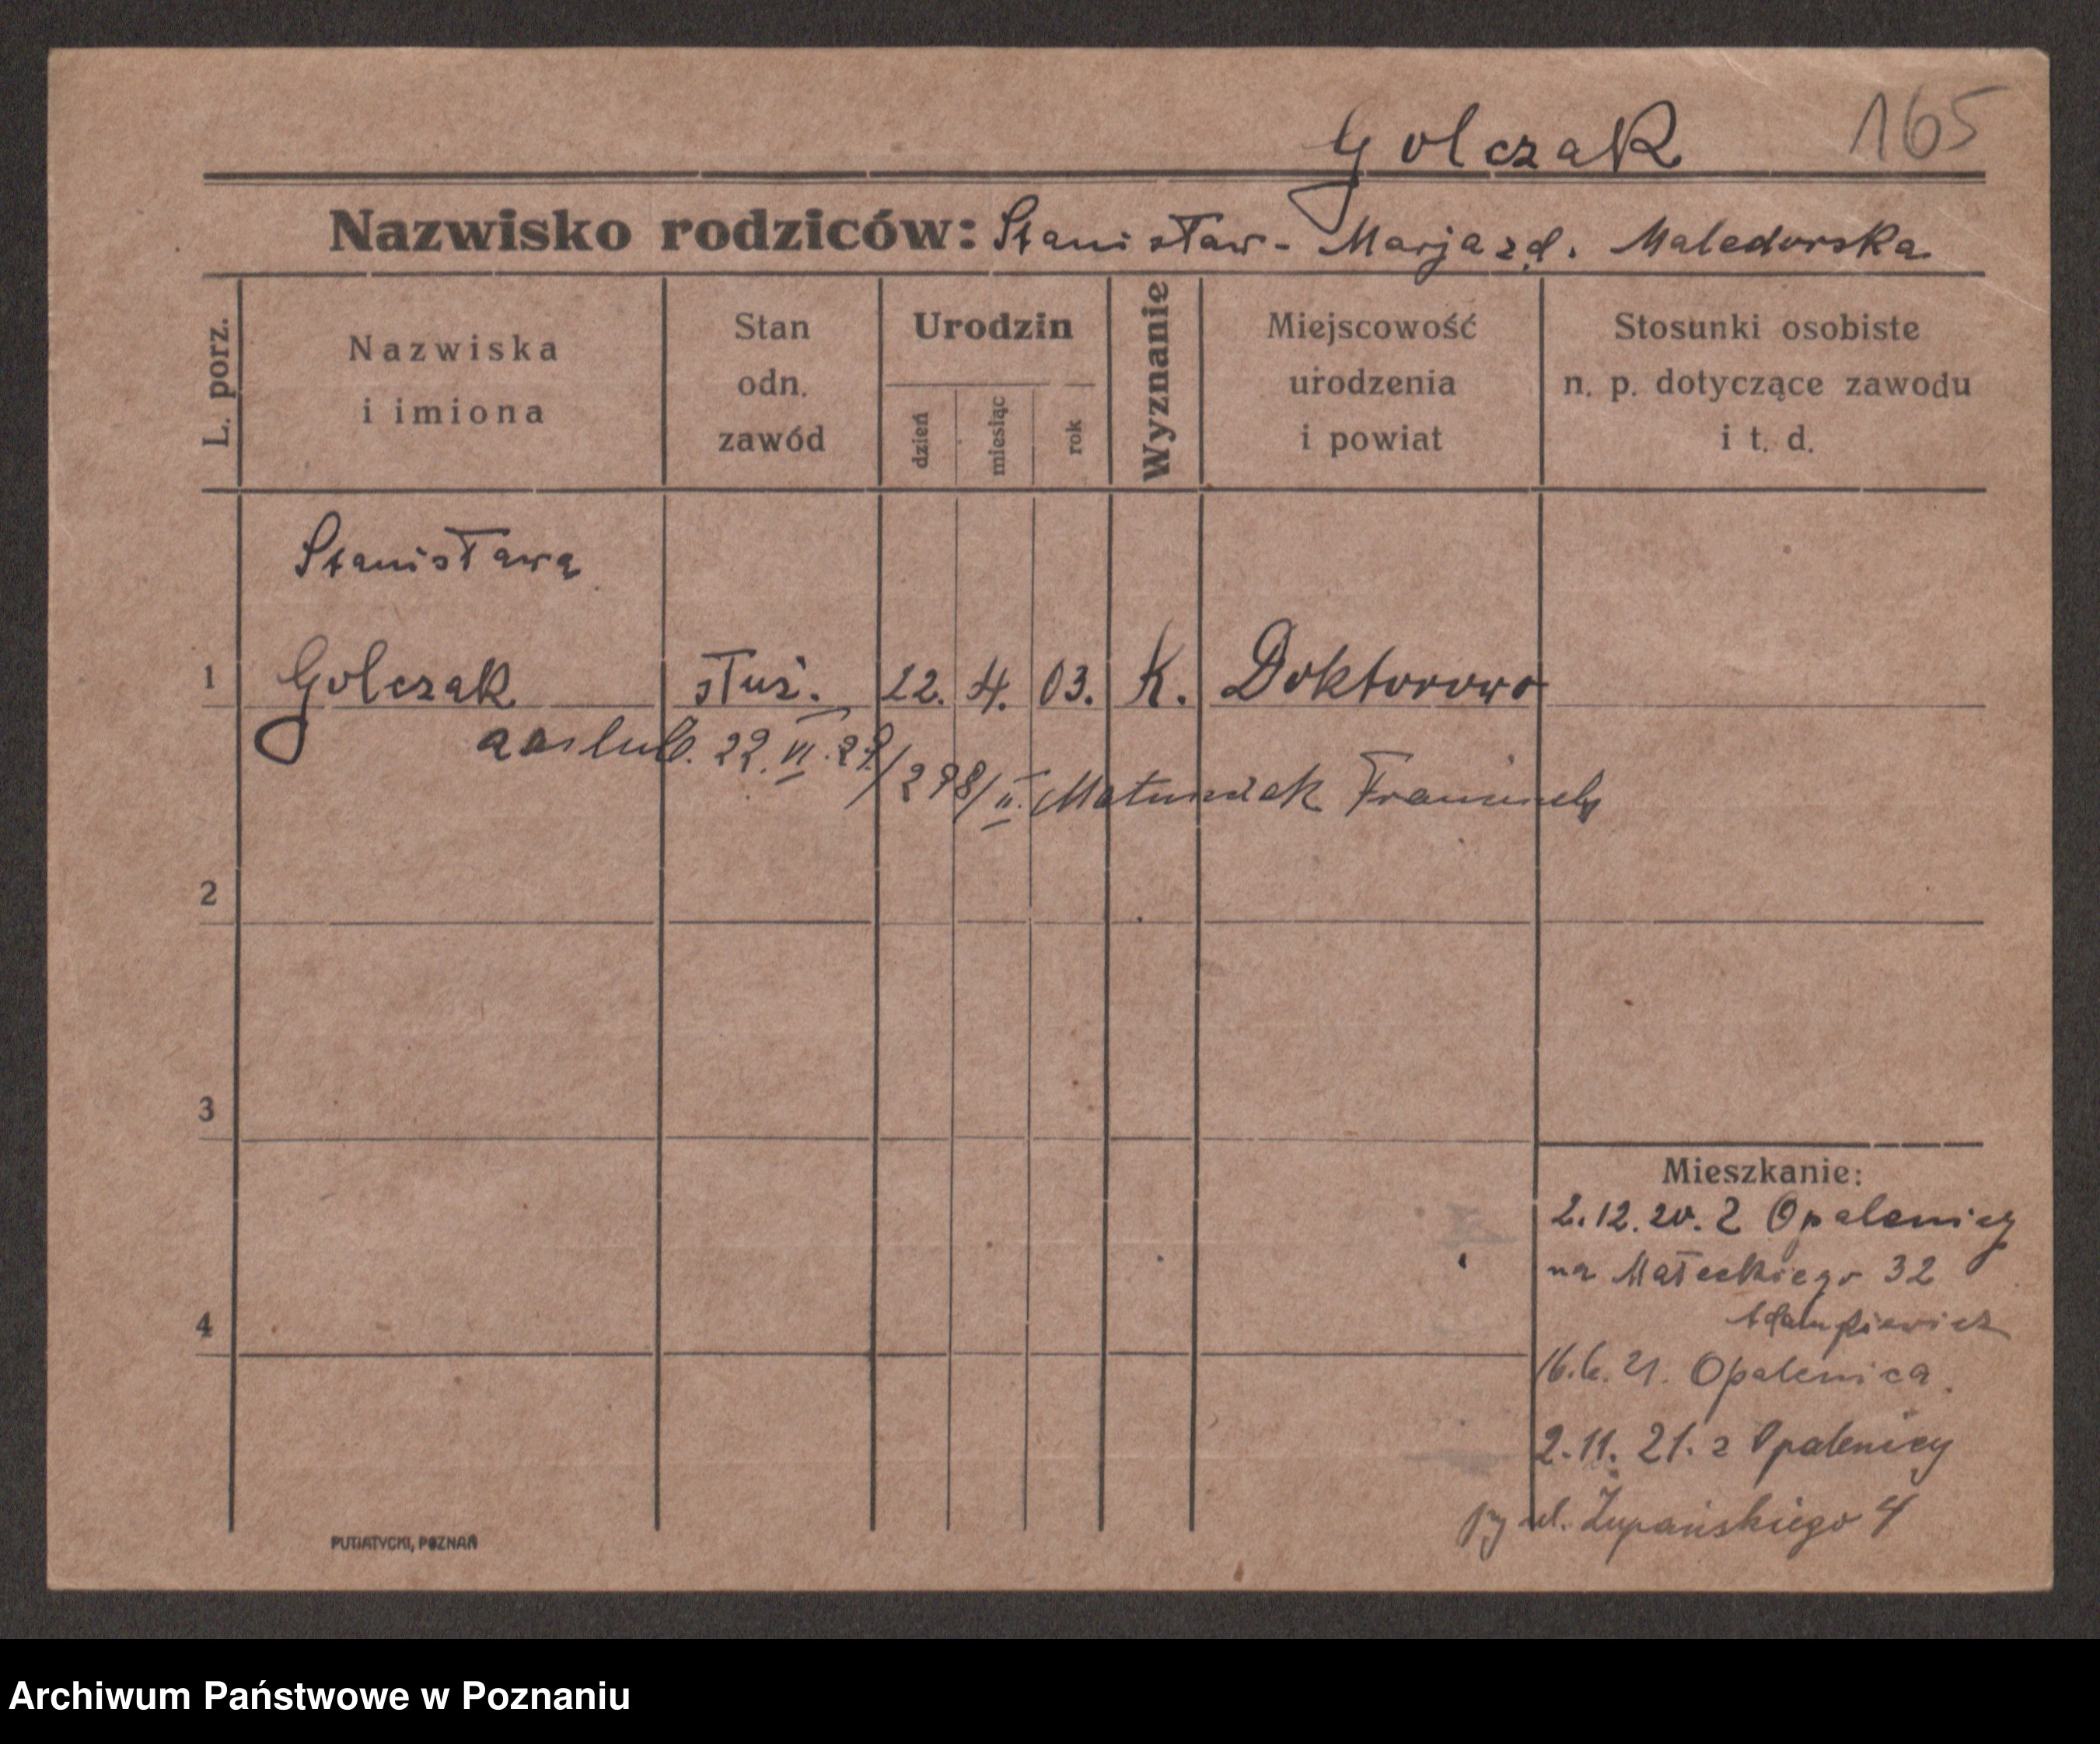 Golczak 165
Nazwisko rodziców: Stanisław - Marja z d. Maledorska
L. porz.
Nazwiska
i imiona
Stan
odn.
zawód
Urodzin
dzień
miesiąc
rok
Wyznanie
Miejscowość
urodzenia
i powiat
Stosunki osobiste
n. p. dotyczące zawodu
i t. d.
Stanisława
1 Golczak służ. 22. 4. 03. K. Doktorowo
22. VI. 29/298/II. Matuszak
2
3
4
Mieszkanie:
2.12.20. Z Opalenicy
na Małeckiego 32
16.6.21. Opalenica.
2.11.21. z Opalenicy
ul. Żupańskiego 4
PUTIATYCKI, POZNAŃ
Archiwum Państwowe w Poznaniu